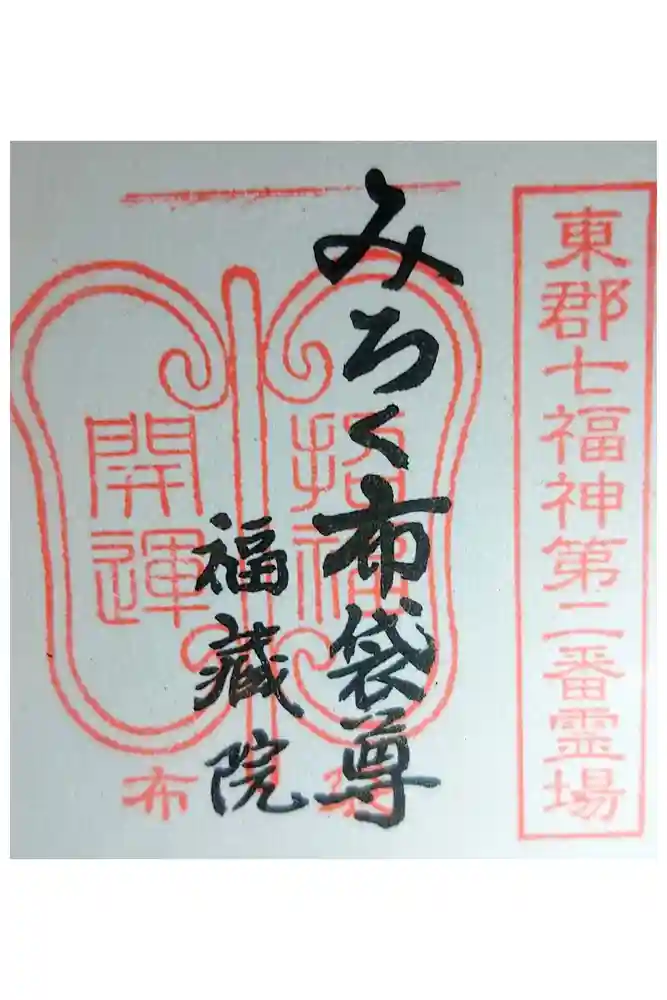 東郡七福神第二番霊場
みろく布袋尊
福蔵院
招福
開運
布